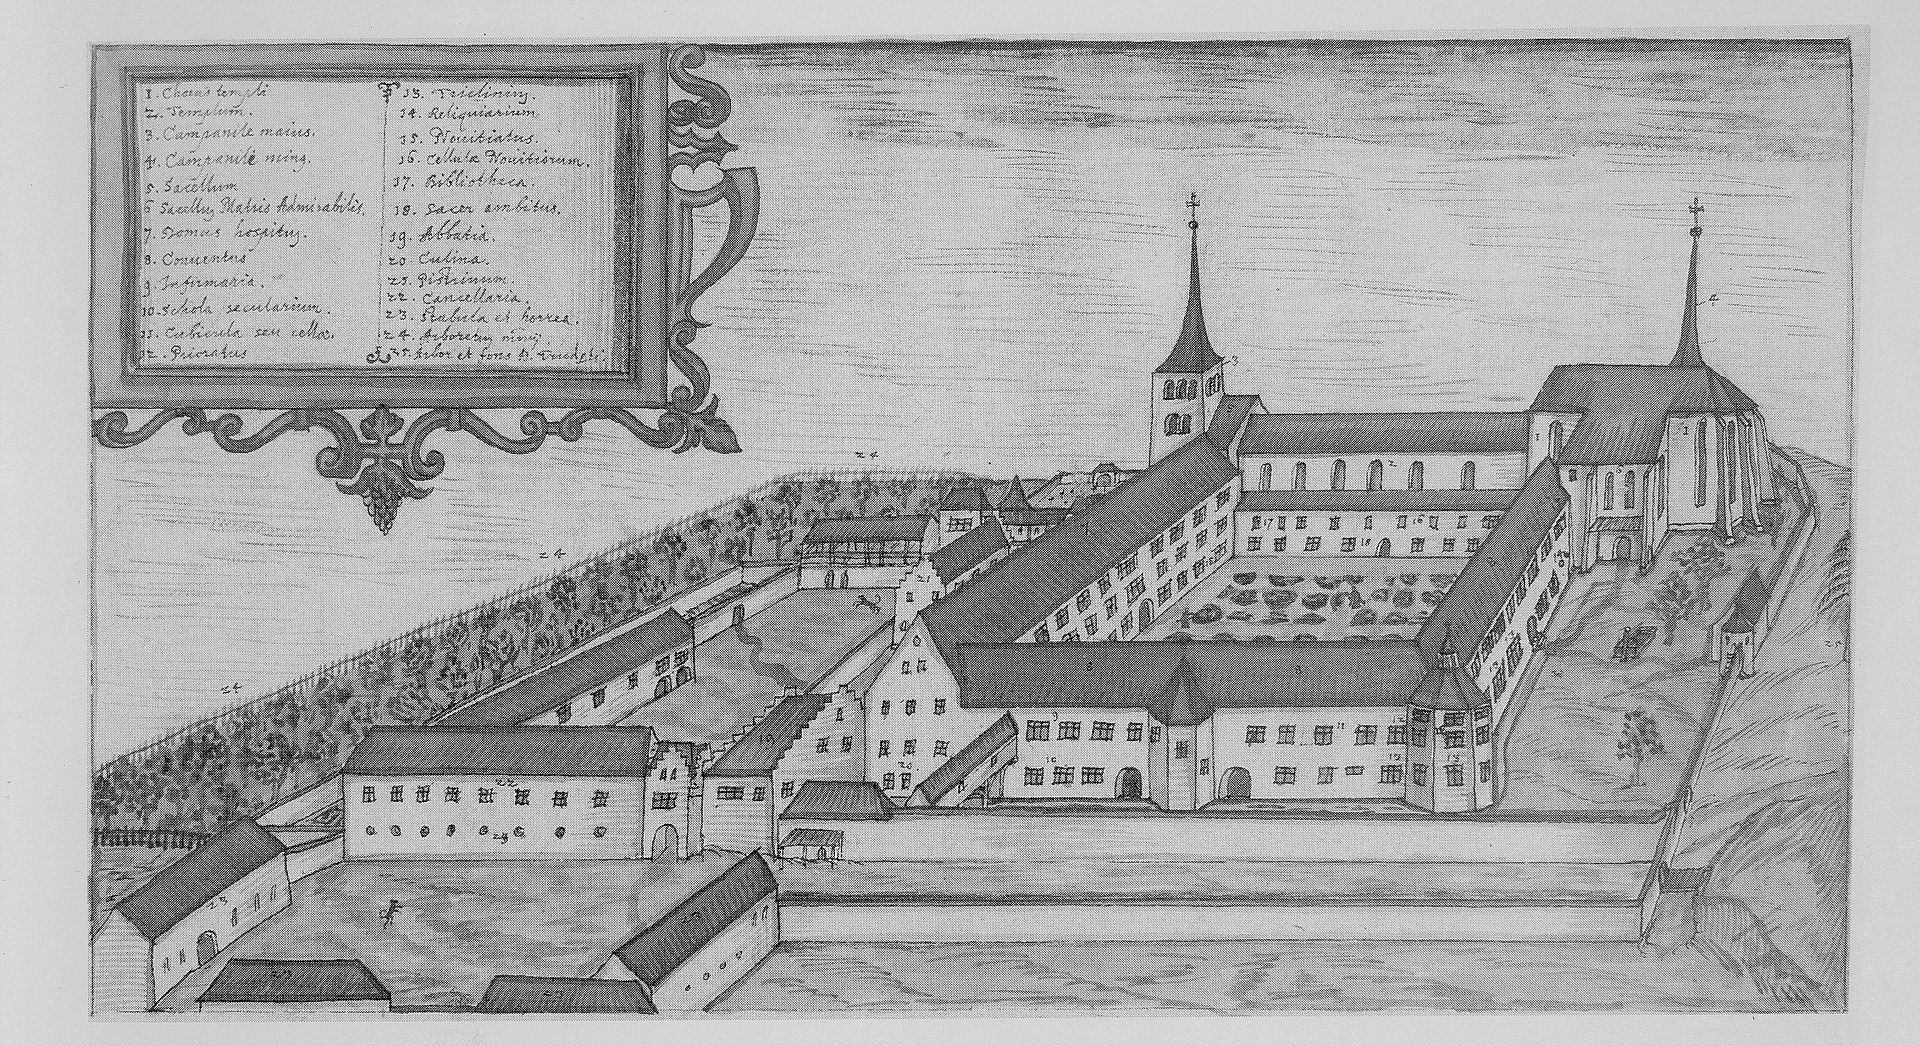 1. Chorus templi
2. Templum.
3. Campanile maius.
4. Campanile ming.
5. Sacellum
6 Sacellu Matris Admirabilis.
7. Domus hospitu.
8. Conuentus
9. Infirmaria.
10. Schola secularium.
11. Cubicula seu cellæ.
12. Prioratus
13. Triclinium.
14. Reliquiarium
15. Nouitiatus.
16. Cellulæ Nouitiorum.
17. Bibliotheca.
18. Sacer ambitus.
19. Abbatia.
20 Culina.
21. Pistrinum.
22. Cancellaria.
23. Stabula et horrea.
24. Arboretu
25. Arbor et fons B.
24
24
24
3
4
1
1
2
5
17
16
18
21
8
8
9
11
12
10
13
15
20
19
22
23
23
25